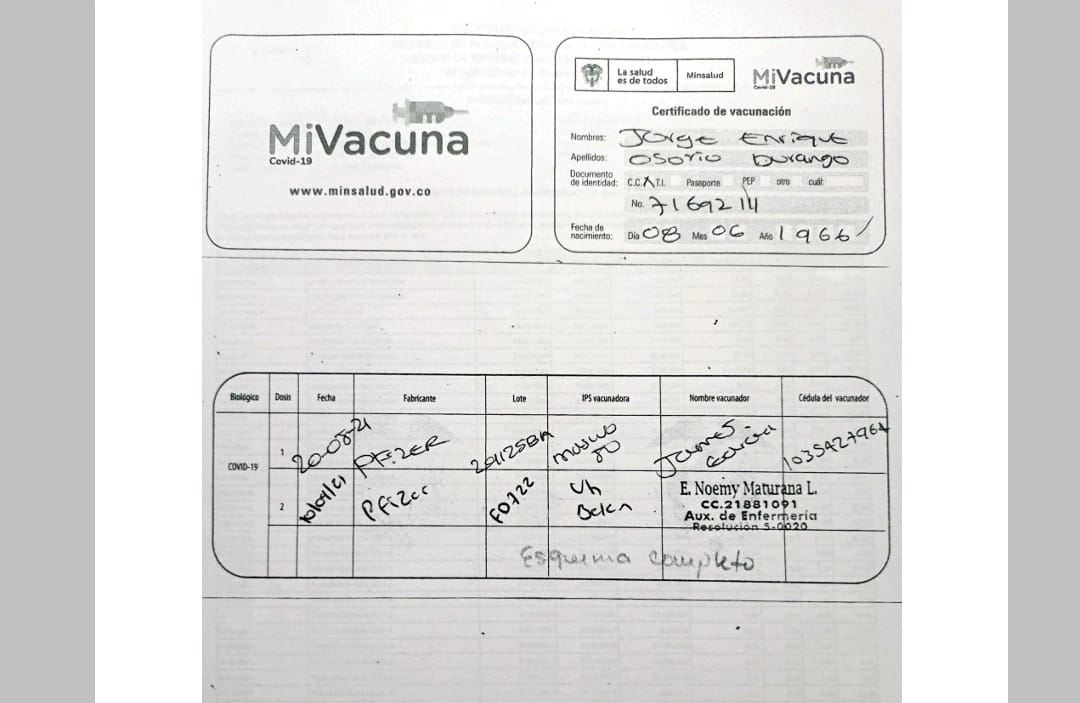 MiVacuna
Covid-19
www.minsalud.gov.co
La salud
es de todos
Minsalud
MiVacuna
Covid-19
Certificado de vacunación
Nombres: Jorge Enrique
Apellidos: Osorio Durango
Documento
de identidad: C.C. X T.I. Pasaporte PEP otro cuál:
No. 71692114
Fecha de
nacimiento: Día 08 Mes 06 Año 1966
Biológico Dosis Fecha Fabricante Lote IPS vacunadora Nombre vacunador Cédula del vacunador
COVID-19
1 20-08-21 PFIZER James Garcia 1035427964
2 Pfizer F0722 Uh Belen
E. Noemy Maturana L.
CC.21881091
Aux. de Enfermería
Resolución S-0020
Esquema completo